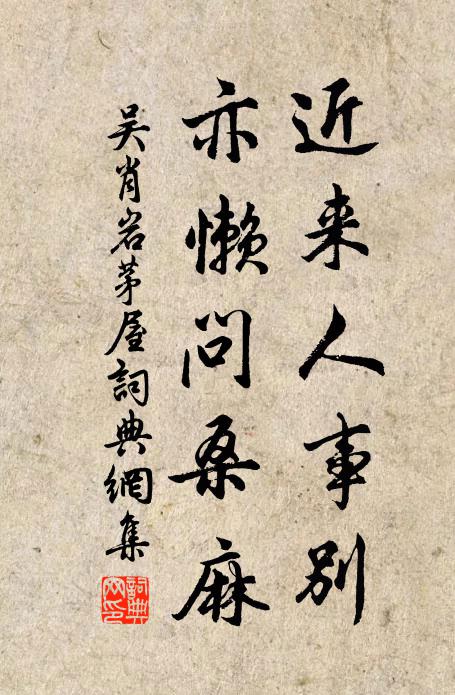 近来人事别
亦懒问桑麻
吴肖岩茅屋詞典網集
詞典网印